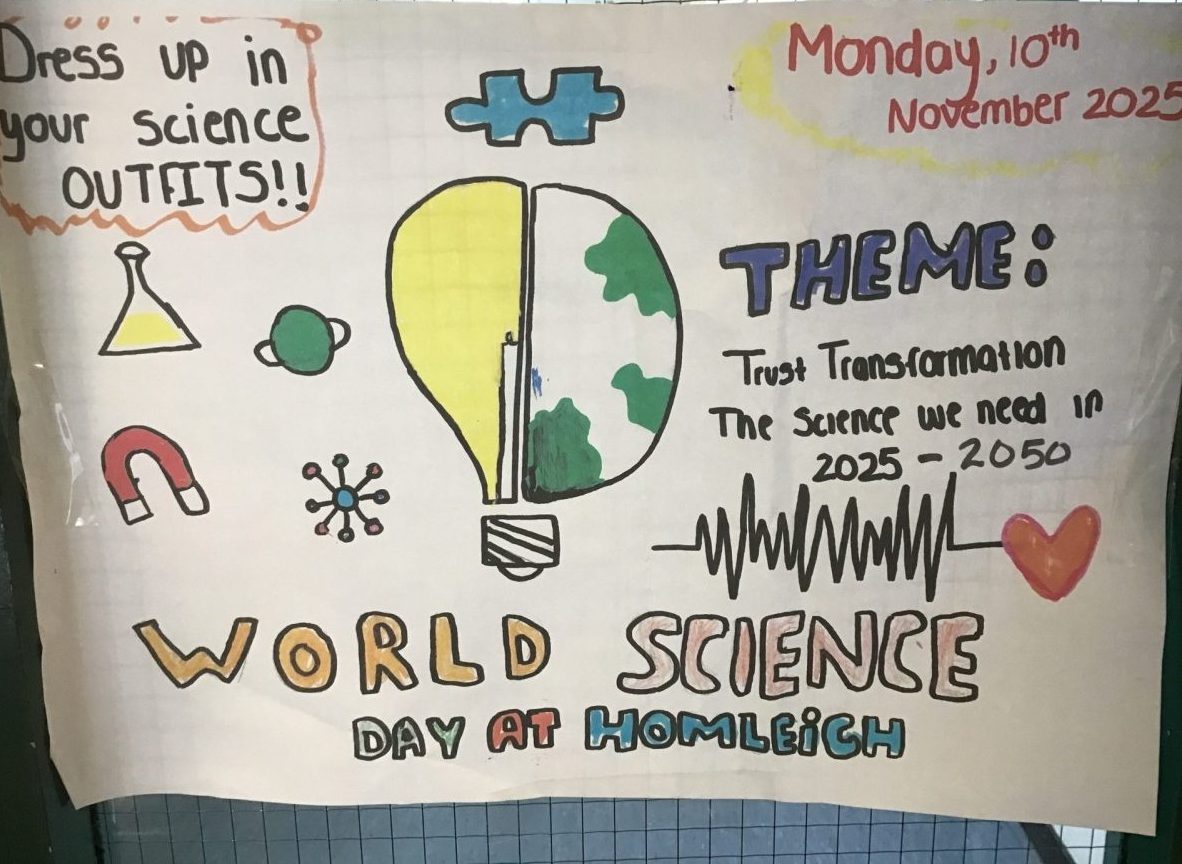 Dress up in
your science
OUTFITS!!
Monday, 10th
November 2025
THEME:
Trust Transformation
The Science we need in
2025 - 2050
WORLD SCIENCE
DAY AT HOMLEiGH